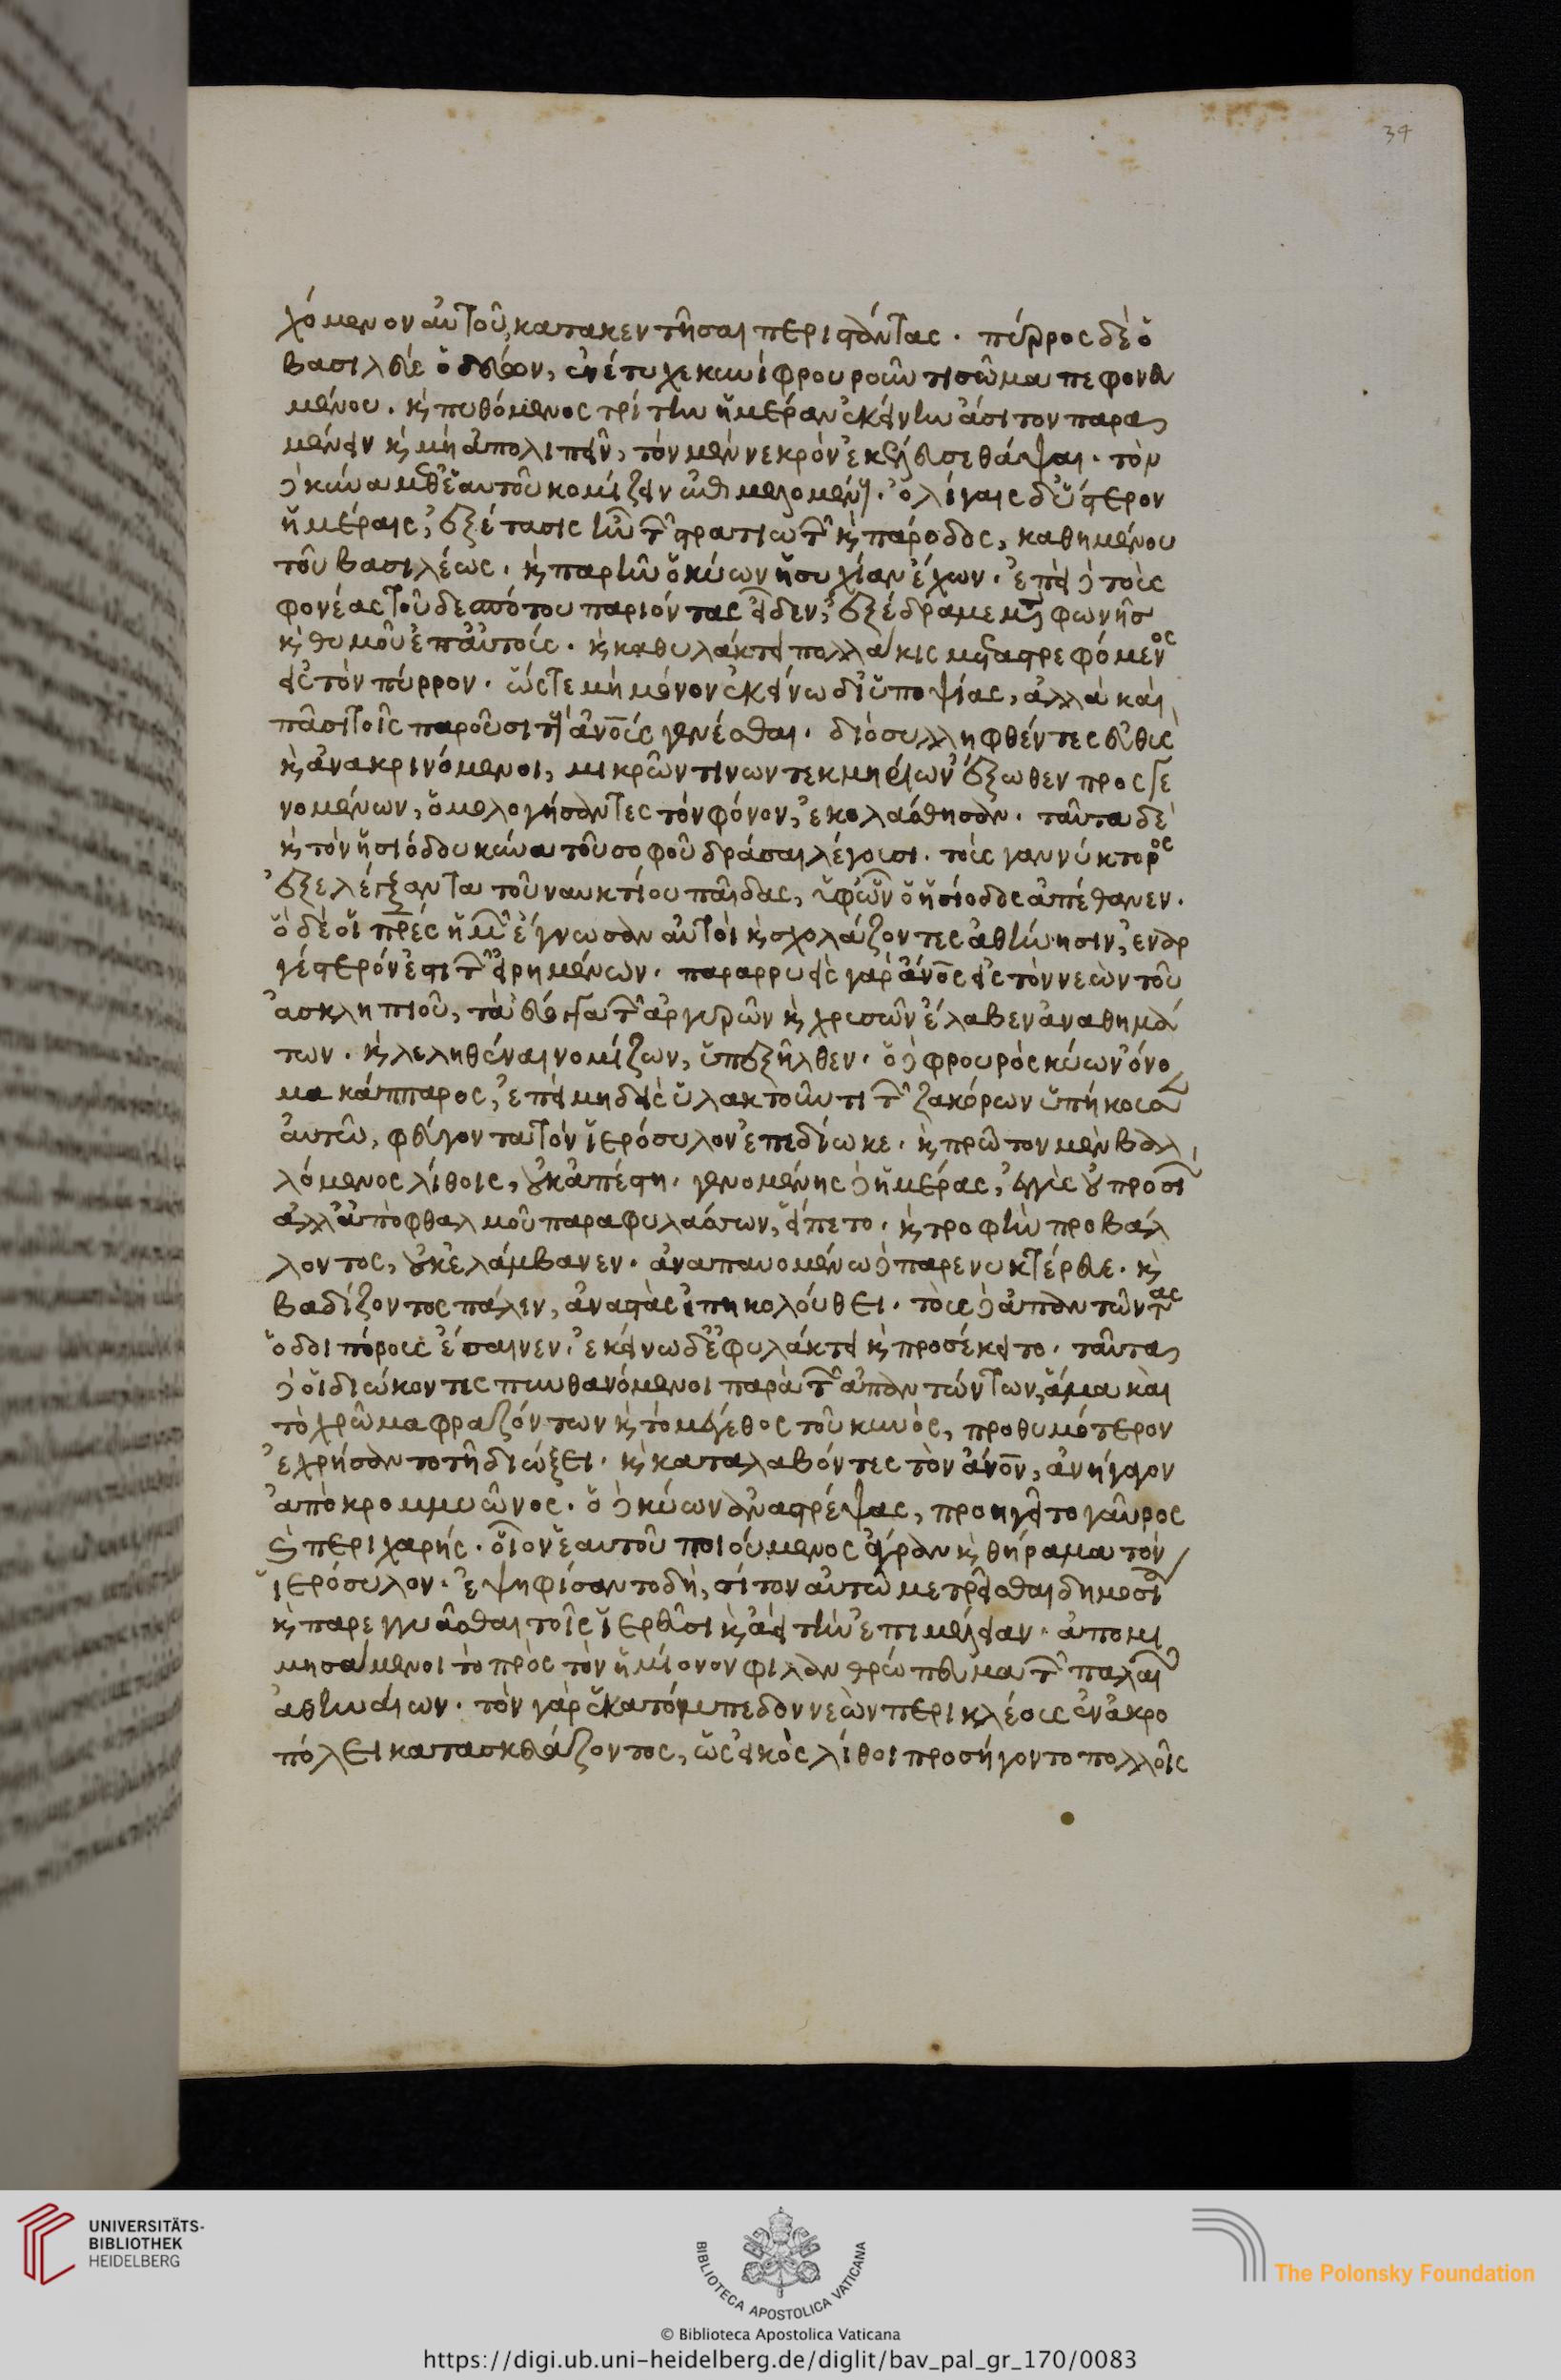 34
χόμενον αὐτοῦ, κατακεντῆσαι περιστάντας. πύρρος δὲ ὁ
βασιλεὺς ὁδεύων, ἐνέτυχε κυνὶ φρουροῦντι σῶμα πεφονευ
μένου. κ πυθόμενος τρίτην ἡμέραν ἐκείνην ἄσιτον παρα
μένειν κ μὴ ἀπολιπεῖν, τὸν μὲν νεκρὸν ἐκέλευσε θάψαι. τὸν
δὲ κύνα μεθ ἑαυτοῦ κομίζειν ἐπιμελομένους. ὀλίγαις δ ὕστερον
ἡμέραις, ἐξέτασις ἦν τῶν στρατιωτῶν κ πάροδος, καθημένου
τοῦ βασιλέως. κ παρῆν ὁ κύων ἡσυχίαν ἔχων. ἐπεὶ δὲ τοὺς
φονέας τοῦ δεσπότου παριόντας εἶδεν, ἐξέδραμε μετὰ φωνῆς
κ θυμοῦ ἐπ αὐτοὺς. κ καθυλάκτει πολλάκις μεταστρεφόμενος
εἰς τὸν πύρρον. ὥστε μὴ μόνον ἐκείνω δι ὑποψίας, ἀλλὰ καὶ
πᾶσι τοῖς παροῦσι τοὺς ἀνοὺς γενέσθαι. διὸ συλληφθέντες εὐθὺς
κ ἀνακρινόμενοι, μικρῶν τινων τεκμηρίων ἔξωθεν προσγε
νομένων, ὁμολογήσαντες τὸν φόνον, ἐκολάσθησαν. ταῦτα δὲ
κ τὸν ἡσιόδου κύνα τοῦ σοφοῦ δρᾶσαι λέγουσι. τοὺς γανύκτορος
ἐξελέγξαντα τοῦ ναυκτίου παῖδας, ὑφ ὧν ὁ ἡσίοδος ἀπέθανεν.
ὃ δὲ οἱ πρες ἡμῶν ἔγνωσαν αὐτοὶ κ σχολάζοντες ἀθήνησιν, ἐναρ
γέστερόν ἐστι τῶν εἰρημένων. παραρρυεὶς γὰρ ἄνος εἰς τὸν νεὼν τοῦ
ἀσκληπιοῦ, τὰ εὔογκα τῶν ἀργυρῶν κ χρυσῶν ἔλαβεν ἀναθημά
των. κ λεληθέναι νομίζων, ὑπεξῆλθεν. ὁ δὲ φρουρὸς κύων ὄνο
μα κάππαρος, ἐπεὶ μηδεὶς ὑλακτοῦντι τῶν ζακόρων ὑπήκουσεν
αὐτῶ, φεύγοντα τὸν ἱερόσυλον ἐπεδίωκε. κ πρῶτον μὲν βαλ
λόμενος λίθοις, οὐκ ἀπέστη. γενομένης δὲ ἡμέρας, ἐγγὺς οὐ προσιὼν
ἀλλ ἀπ ὀφθαλμοῦ παραφυλάσσων, εἵπετο. κ τροφὴν προβάλ
λοντος, οὐκ ἐλάμβανεν. ἀναπαυομένω δὲ παρενυκτέρευε. κ
βαδίζοντος πάλιν, ἀναστὰς ἐπηκολούθει. τοὺς δὲ ἀπαντῶντας
ὁδοιπόρους ἔσαινεν. ἐκείνω δὲ ἐφυλάκτει κ προσέκειτο. ταῦτα
δὲ οἱ διώκοντες πυνθανόμενοι παρὰ τῶν ἀπαντώντων, ἅμα καὶ
τὸ χρῶμα φραζόντων κ τὸ μέγεθος τοῦ κυνὸς, προθυμότερον
ἐχρήσαντο τῆ διώξει. κ καταλαβόντες τὸν ἄνον, ἀνήγαγον
ἀπὸ κρομμυῶνος. ὁ δὲ κύων ἀναστρέψας, προηγεῖτο γαῦρος
κ περιχαρής. οἷον ἑαυτοῦ ποιούμενος ἄγραν κ θήραμα τὸν
ἱερόσυλον. ἐψηφίσαντο δὴ, σῖτον αὐτῶ μετρεῖσθαι δημοσία
κ παρεγγυᾶσθαι τοῖς ἱερεῦσι κ ἀεὶ τὴν ἐπιμέλειαν. ἀπομι
μησάμενοι τὸ πρὸς τὸν ἡμίονον φιλανθρώπευμα τῶν παλαιῶν
ἀθηναίων. τὸν γὰρ ἑκατόμπεδον νεὼν περικλέους ἐν ἀκρο
πόλει κατασκευάζοντος, ὡς εἰκὸς λίθοι προσήγοντο πολλοῖς
UNIVERSITÄTS-
BIBLIOTHEK
HEIDELBERG
BIBLIOTECA APOSTOLICA VATICANA
The Polonsky Foundation
© Biblioteca Apostolica Vaticana
https://digi.ub.uni-heidelberg.de/diglit/bav_pal_gr_170/0083